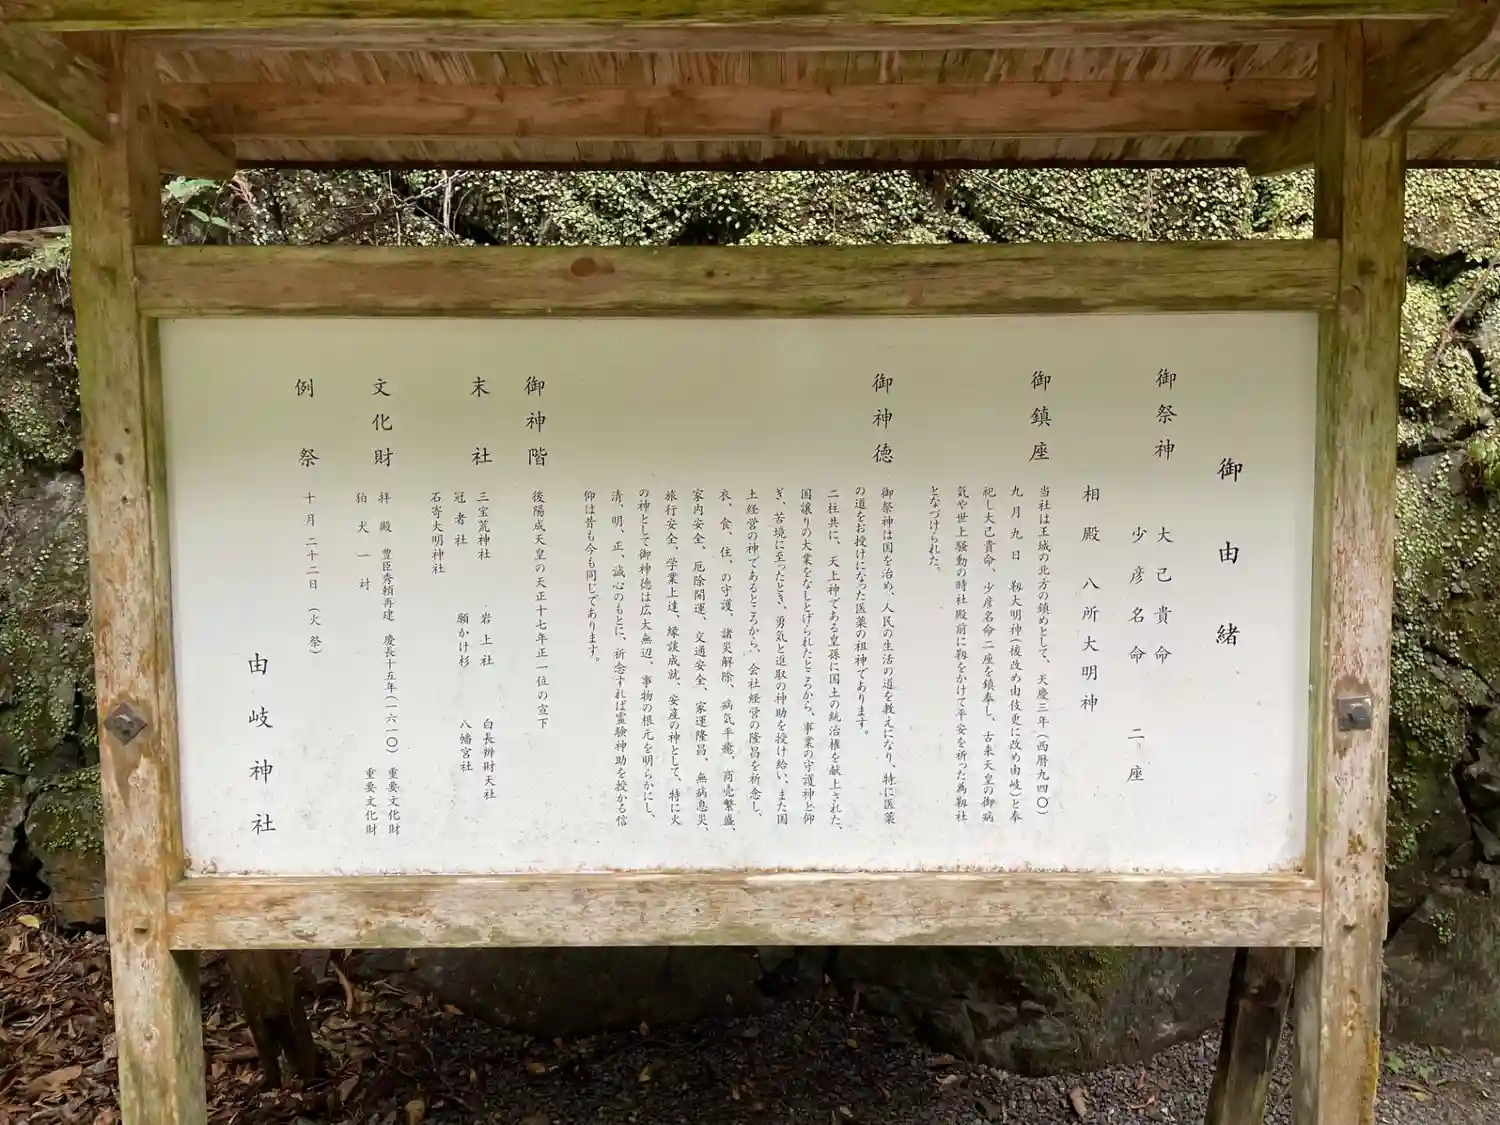 御由緒
御祭神 大己貴命
少彦名命 二座
相殿 八所大明神
御鎮座 当社は王城の北方の鎮めとして、天慶三年(西暦九四〇)
九月九日 靱大明神(後改め由伎更に改め由岐)と奉
祀し大己貴命、少彦名命二座を鎮奉し、古来天皇の御病
気や世上騒動の時社殿前に靱をかけて平安を祈った為靱社
となづけられた。
御神徳 御祭神は国を治め、人民の生活の道を教えになり、特に医薬
の道をお授けになった医薬の祖神であります。
二柱共に、天上神である皇孫に国土の統治権を献上された、
国譲りの大業をなしとげられたところから、事業の守護神と仰
ぎ、苦境に至ったとき、勇気と進取の神助を授け給い、また国
土経営の神であるところから、会社経営の隆昌を祈念し、
衣、食、住、の守護、諸災解除、病気平癒、商売繁盛、
家内安全、厄除開運、交通安全、家運隆昌、無病息災、
旅行安全、学業上達、縁談成就、安産の神として、特に火
の神として御神徳は広大無辺、事物の根元を明らかにし、
清、明、正、誠心のもとに、祈念すれば霊験神助を授かる信
仰は昔も今も同じであります。
御神階 後陽成天皇の天正十七年正一位の宣下
末社 三宝荒神社 岩上社 白長辨財天社
冠者社 願かけ杉 八幡宮社
石寄大明神社
文化財 拝殿 豊臣秀頼再建 慶長十五年(一六一〇) 重要文化財
狛犬一対 重要文化財
例祭 十月二十二日(火祭)
由岐神社